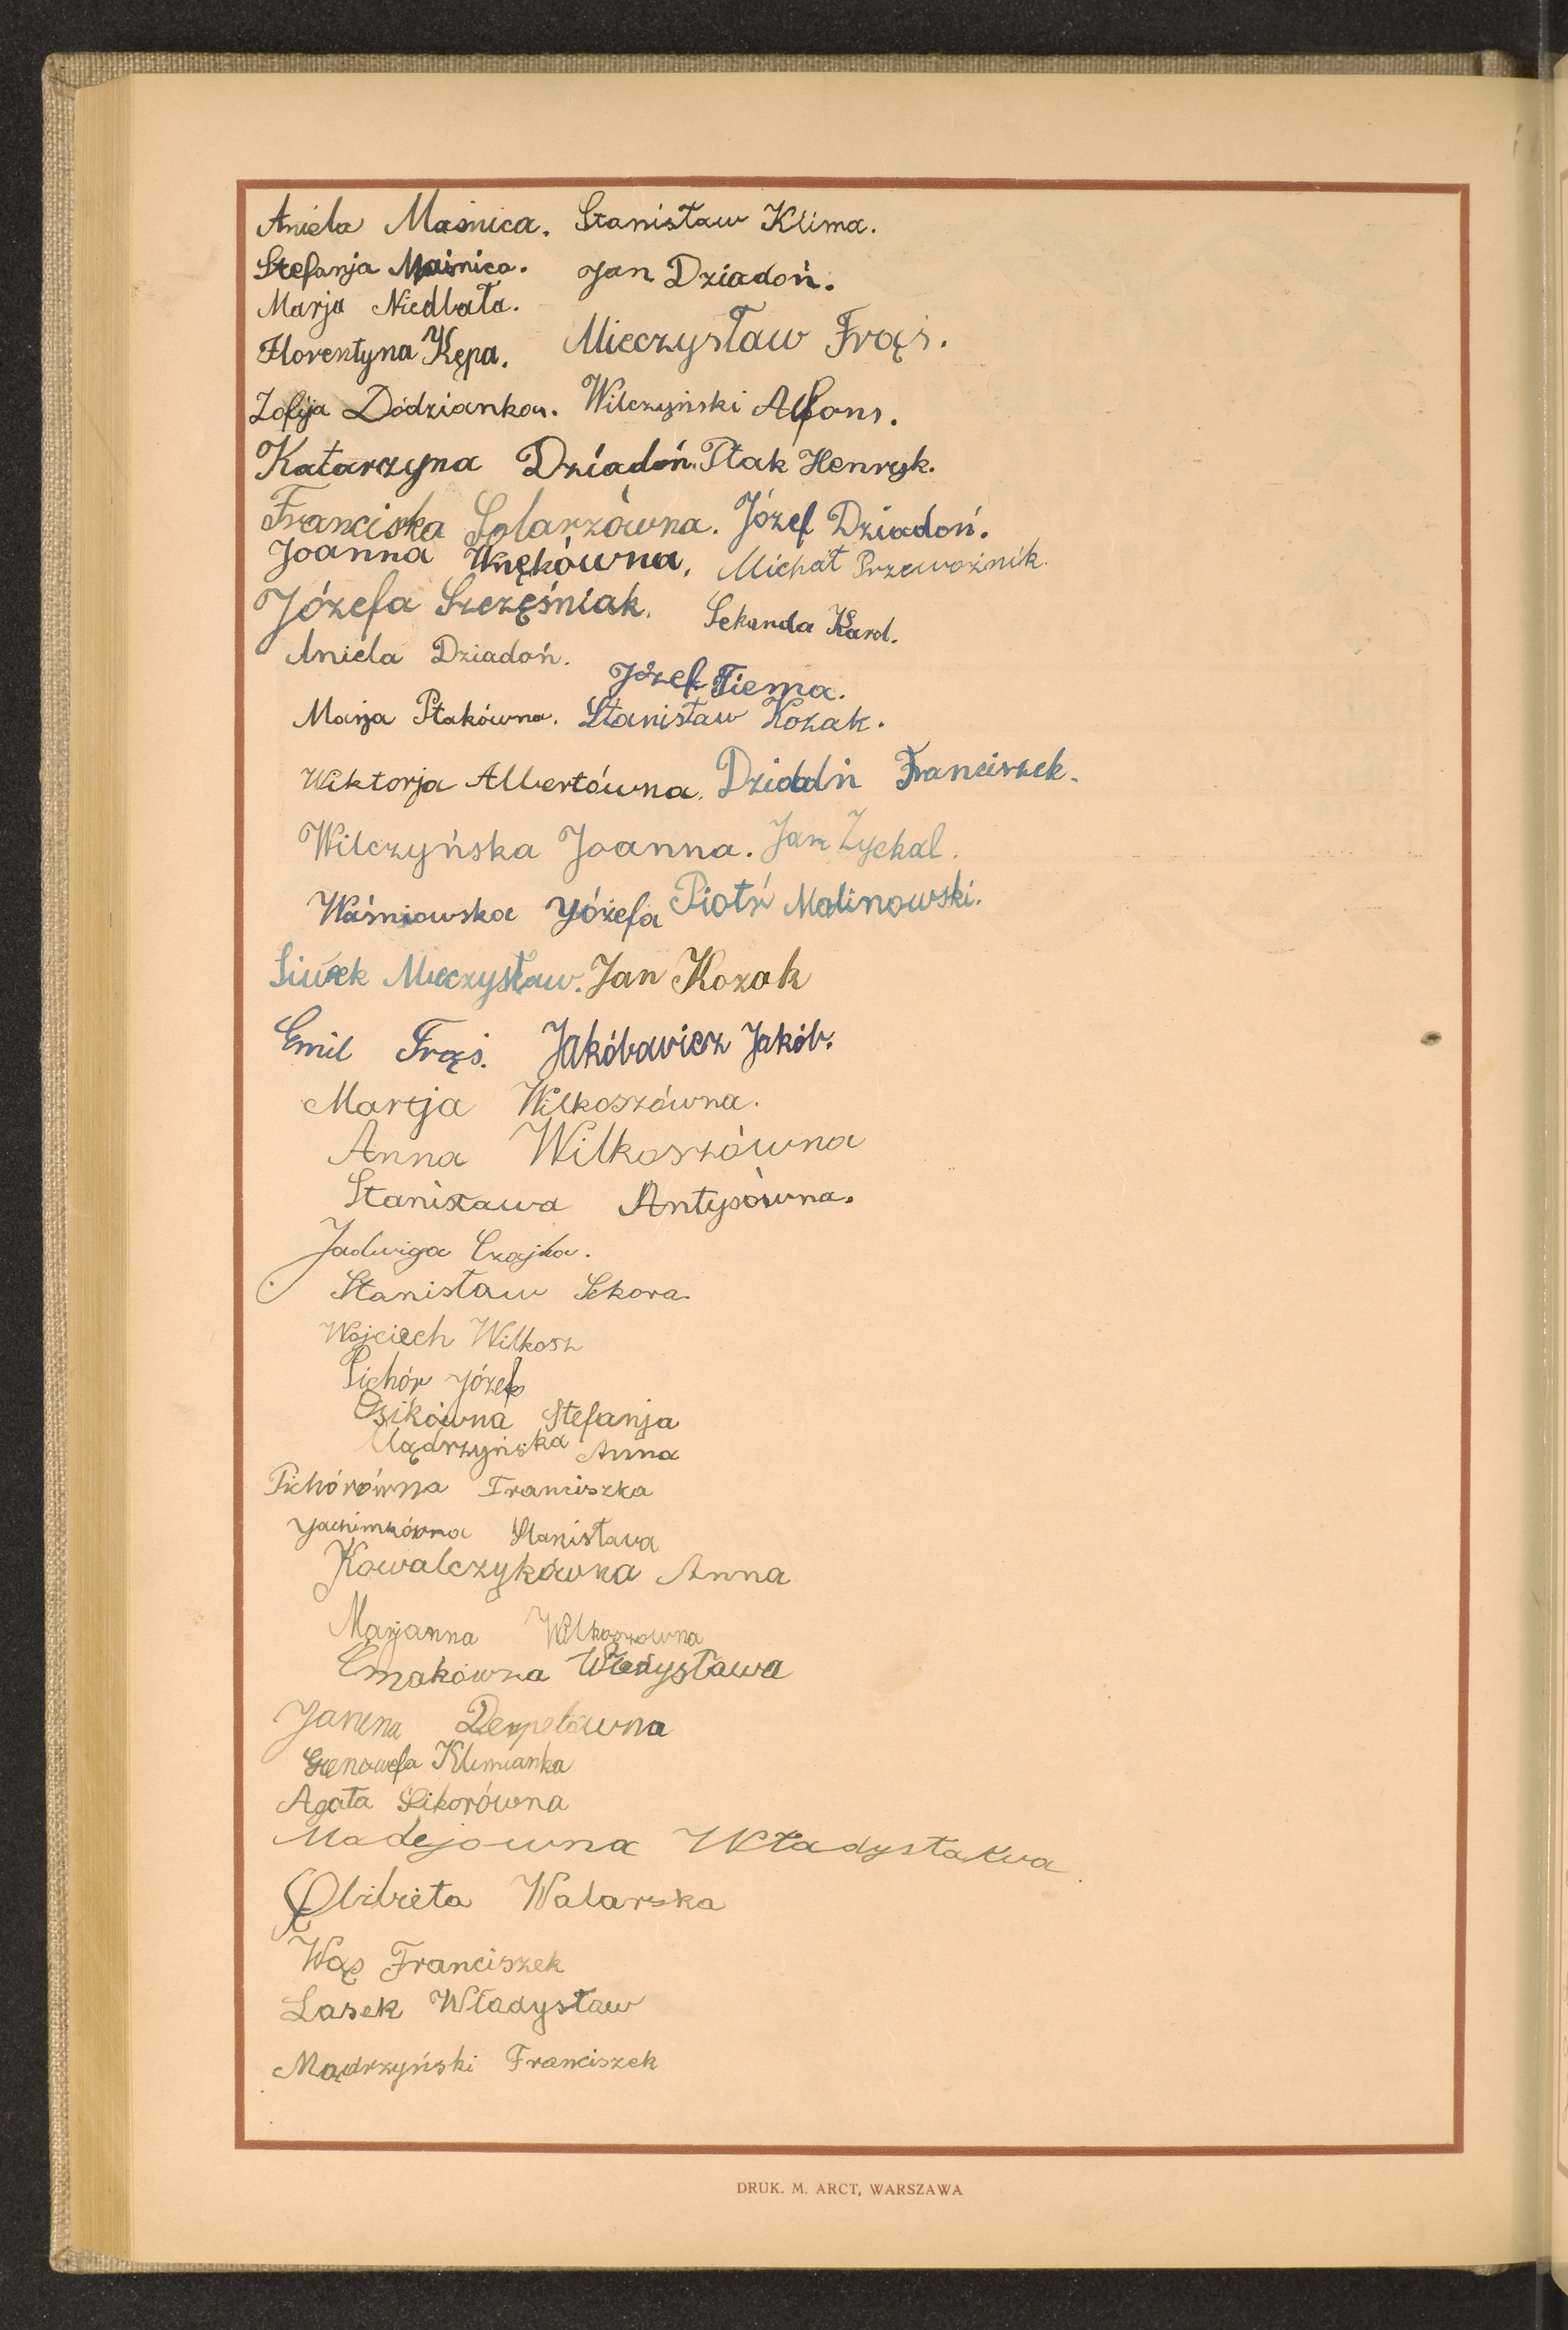 Aniela Maśnica. Stanisław Klima.
Stefanja Maśnica. Jan Dziadoń.
Marja Niedbała.
Florentyna Kępa. Mieczysław Frąś.
Zofija Dodzianka. Wilczyński Alfons.
Katarzyna Dziadoń. Ptak Henryk.
Franciska Solarzówna. Józef Dziadoń.
Joanna Wnękówna. Michał Przewoźnik.
Józefa Szczęśniak. Sekunda Karol.
Aniela Dziadoń.
Józef Tiema.
Marja Ptakówna. Stanisław Kozak.
Wiktorja Albertówna. Dziadń Franciszek.
Wilczyńska Joanna. Jan Zychal.
Waśniowska Józefa Piotr Malinowski.
Siwek Mieczysław. Jan Kozak
Emil Frąś. Jakóbowicz Jakób.
Marja Wilkoszówna.
Anna Wilkoszówna
Stanisława Antysówna.
Jadwiga Czajka.
Stanisław Sikora.
Wojciech Wilkosz
Pichór Józef
Osikówna Stefanja
Mądrzyńska Anna
Pichórówna Franciszka
Jachimkówna Stanisława
Kowalczykówna Anna
Marjanna Wilkoszowna
Ćmakówna Władysława
Janina
Genowefa Klimianka
Agata Sikorówna
Madejowna Władysława
Elżbieta Walarska
Wąs Franciszek
Lasek Władysław
Mądrzyński Franciszek
DRUK. M. ARCT, WARSZAWA